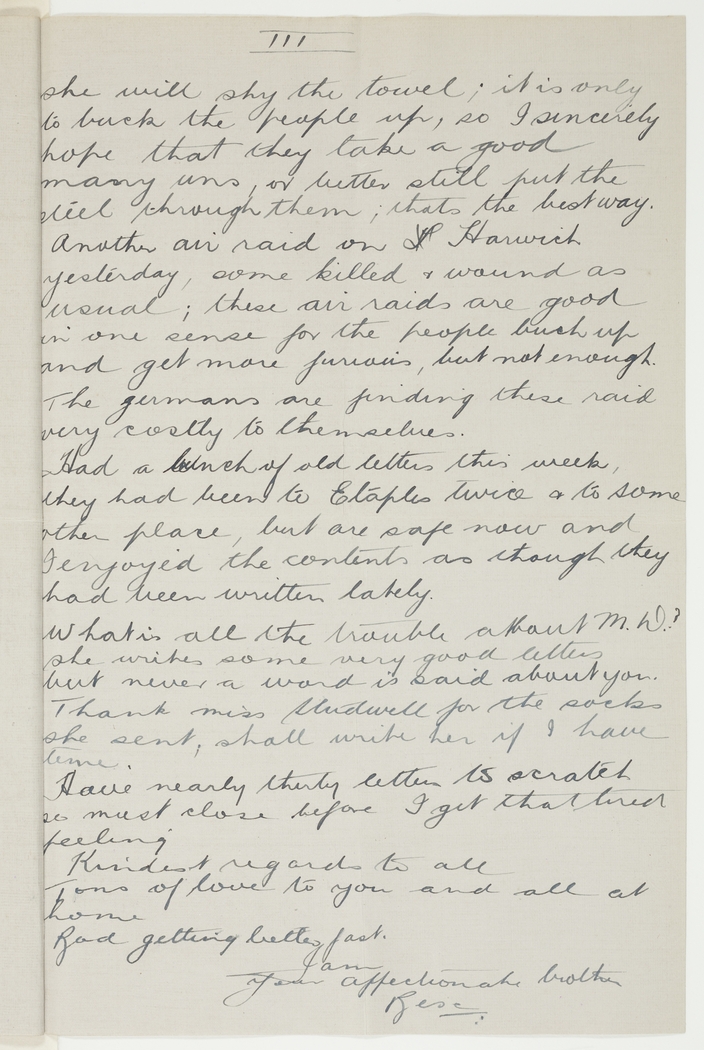 III
she will shy the towel; it is only
to buck the people up, so I sincerely
hope that they take a good
many uns, or better still put the
steel through them; thats the best way.
Another air raid on Harwich
yesterday, some killed & wound as
usual; these air raids are good
in one sense for the people buck up
and get more furious, but not enough.
The germans are finding these raid
very costly to themselves.
Had a bunch of old letters this week,
they had been to Etaples twice & to some
other place, but are safe now and
I enjoyed the contents as though they
had been written lately.
What is all the trouble about M. D.?
she writes some very good letters
but never a word is said about you.
Thank miss Studwell for the socks
she sent, shall write her if I have
time.
Have nearly thirty letters to scratch
so must close before I get that tired
feeling
Kindest regards to all
Tons of love to you and all at
home
Rod getting better fast.
I am
Your affectionate brother